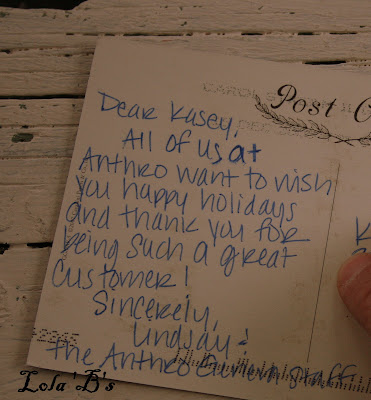 Post
Dear Kasey,
All of us at
Anthro want to wish
you happy holidays
and thank you for
being such a great
customer!
Sincerely,
Lindsay &
the Anthro staff
Lola'B's